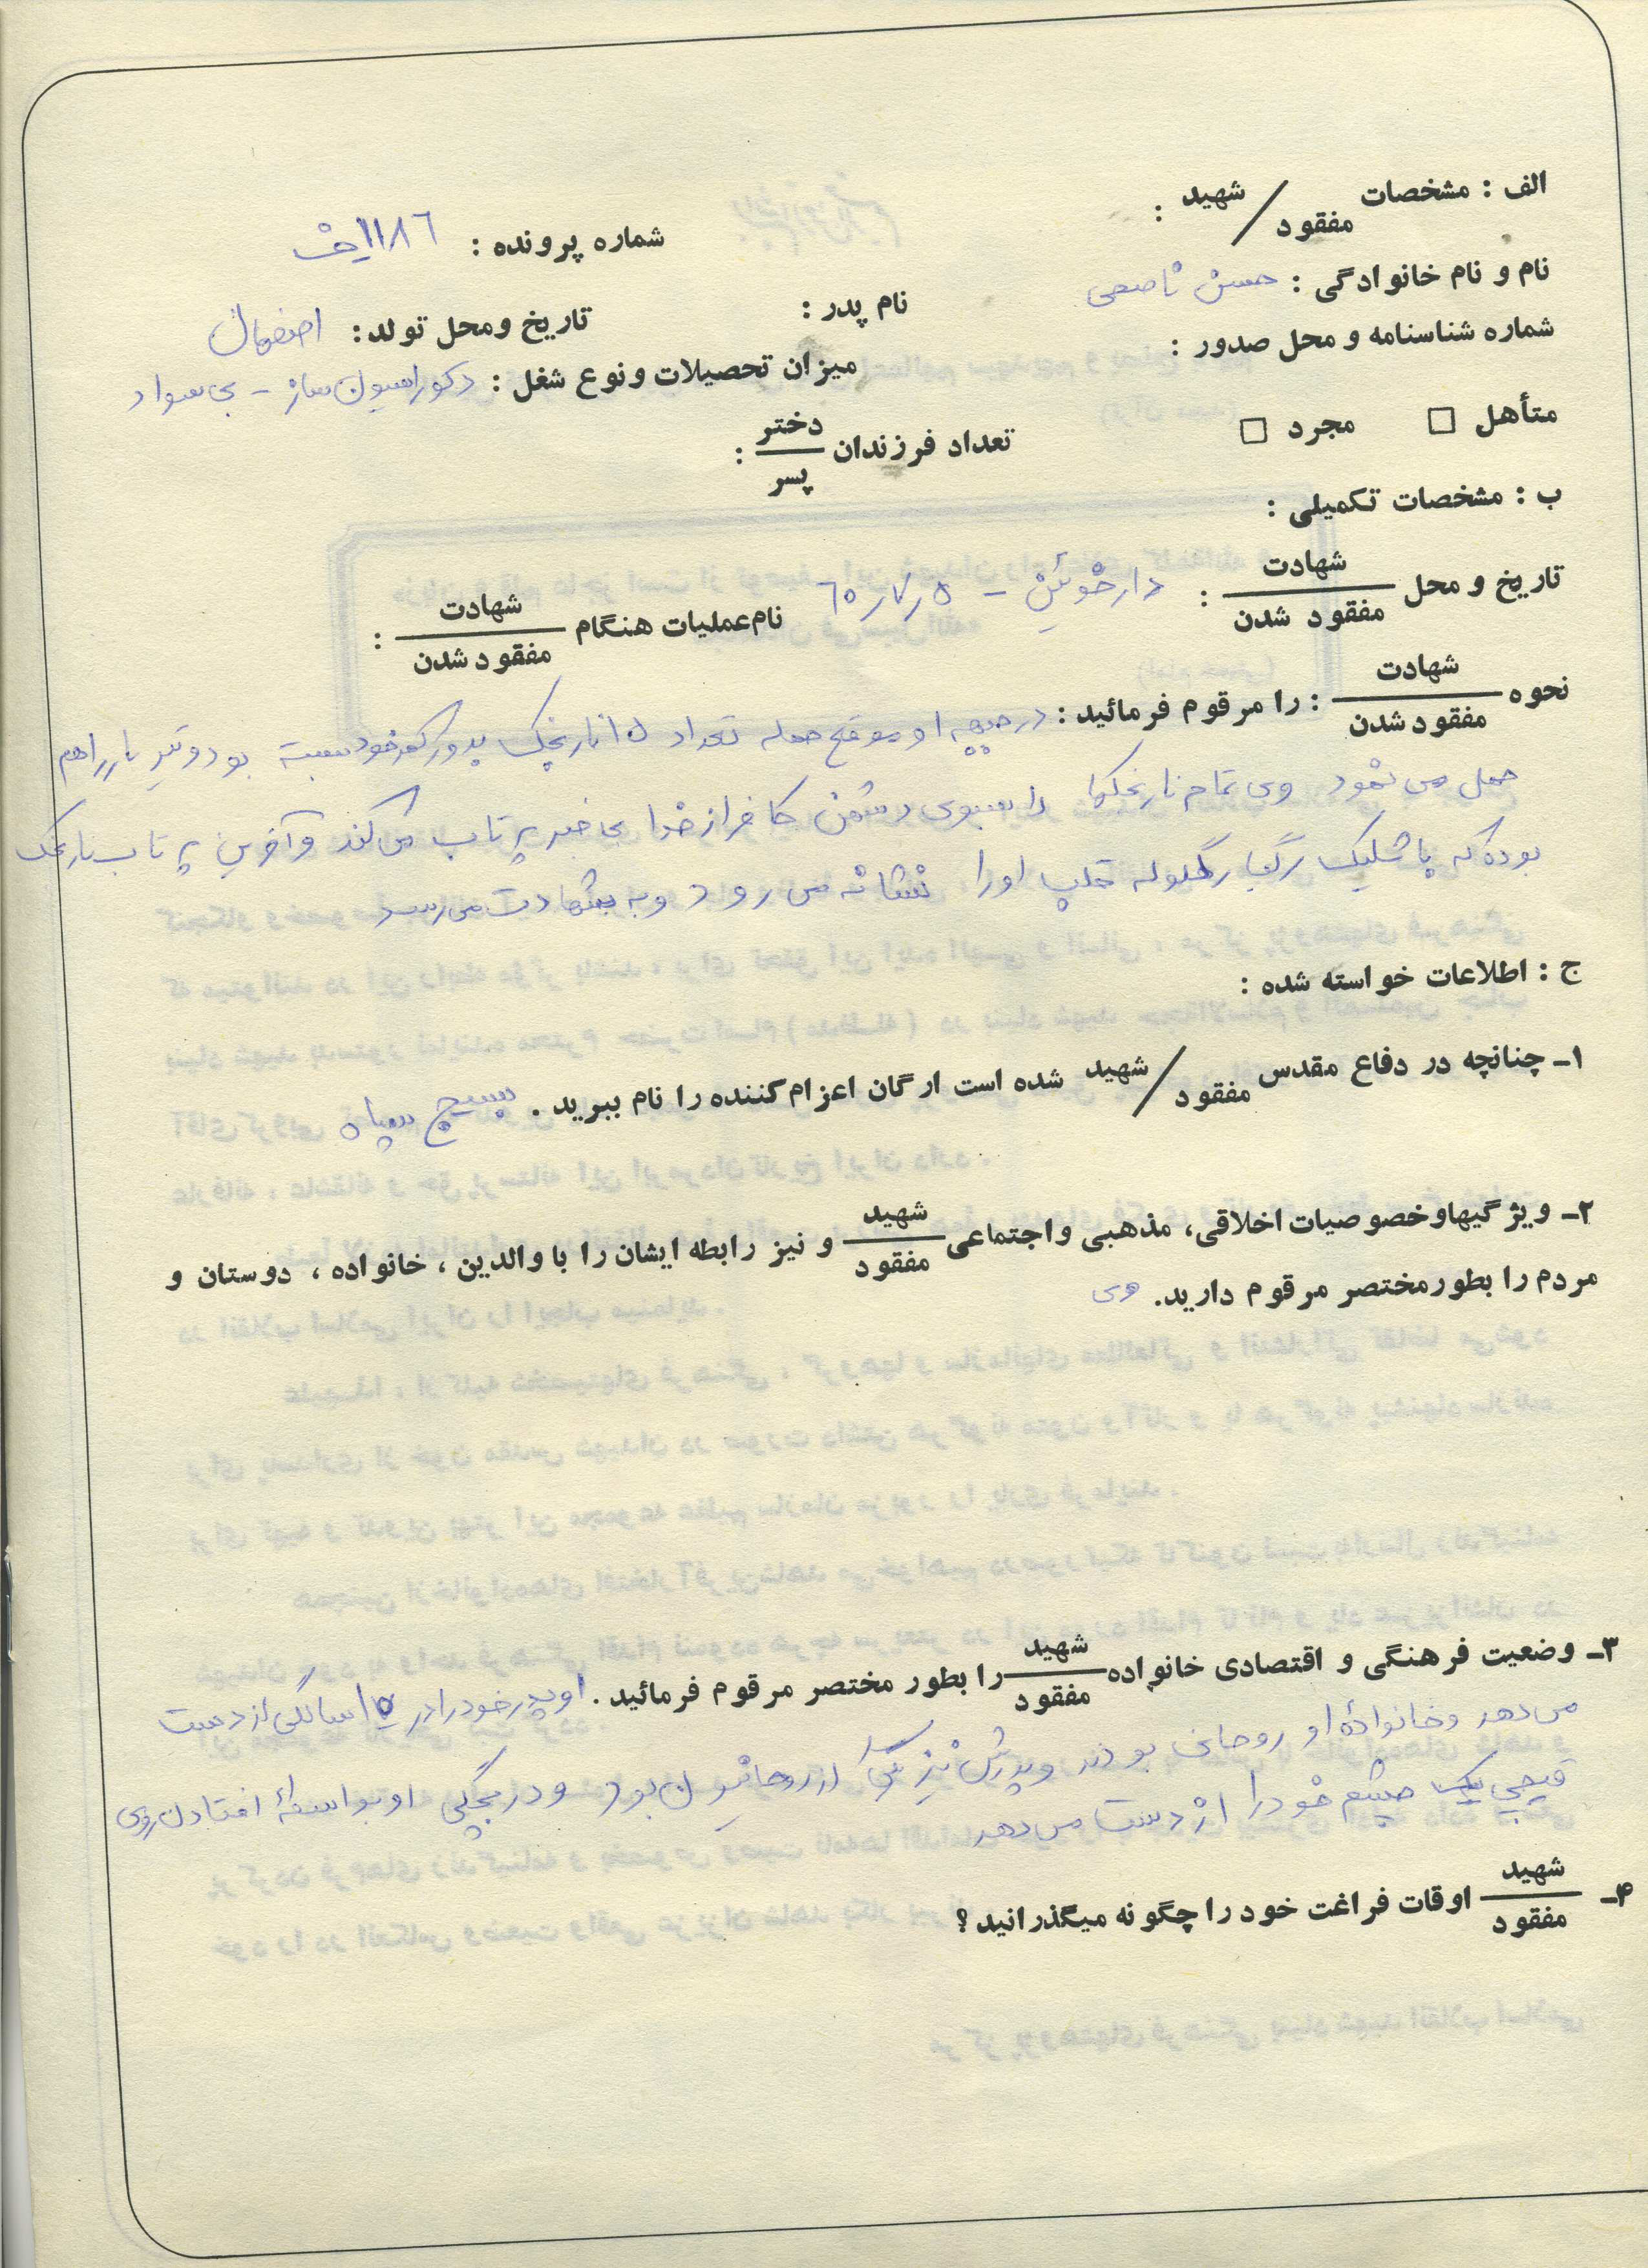 الف : مشخصات شهید / مفقود :
شماره پرونده : ۱۱۸۶
نام و نام خانوادگی : حسن ناصحی
نام پدر :
تاریخ ومحل تولد : اصفهان
شماره شناسنامه و محل صدور :
میزان تحصیلات ونوع شغل : دکوراسیون ساز - بی سواد
متأهل □ مجرد □
تعداد فرزندان دختر / پسر :
ب : مشخصات تکمیلی :
تاریخ و محل شهادت / مفقود شدن : دارخوئن - ۶۰/۷/۵
نام عملیات هنگام شهادت / مفقود شدن :
نحوه شهادت / مفقود شدن : را مرقوم فرمائید : در جبهه او موقع حمله تعداد ۱۵ نارنجک بدور کمر خود بسته بود و تیر بار را هم
حمل می نمود وی تمام نارنجکها را بسوی دشمن کافر از خدا بی خبر پرتاب می کند و آخرین پرتاب نارنجک
بوده که با شلیک رگبار گلوله قلب او را نشانه می رود و به شهادت می رسد
ج : اطلاعات خواسته شده :
۱ـ چنانچه در دفاع مقدس شهید / مفقود شده است ارگان اعزام کننده را نام ببرید . بسیج سپاه
۲ـ ویژگیهاوخصوصیات اخلاقی، مذهبی واجتماعی شهید / مفقود و نیز رابطه ایشان را با والدین ، خانواده ، دوستان و
مردم را بطورمختصر مرقوم دارید. وی
۳ـ وضعیت فرهنگی و اقتصادی خانواده شهید / مفقود را بطور مختصر مرقوم فرمائید . او پدر خود را در سالگی از دست
می دهد و خانوادهٔ او روحانی بودند و پدرش نیز یکی از روحانیون بود و در بچگی او بواسطهٔ افتادن روی
قیچی یک چشم خود را از دست می دهد
۴ـ شهید / مفقود اوقات فراغت خود را چگونه میگذرانید ؟